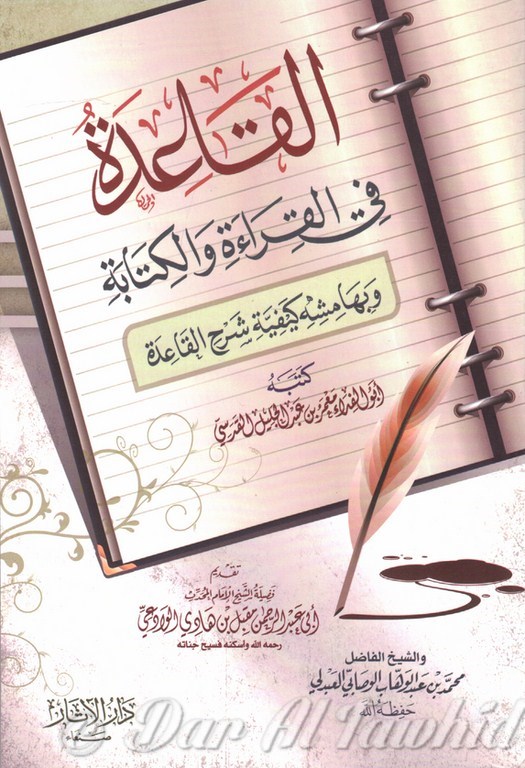 القَاعِدَةُ
فِي القِرَاءَةِ وَالكِتَابَةِ
وبهامشه كيفية شرح القاعدة
كتبه
أبو الفداء معمر بن عبد الجليل القدسي
تقديم
فضيلة الشيخ الإمام المحدث
أبي عبد الرحمن مقبل بن هادي الوادعي
رحمه الله وأسكنه فسيح جناته
والشيخ الفاضل
محمد بن عبد الوهاب الوصابي العبدلي
حفظه الله
دار الآثار
صنعاء
© Dar Al Tawhid